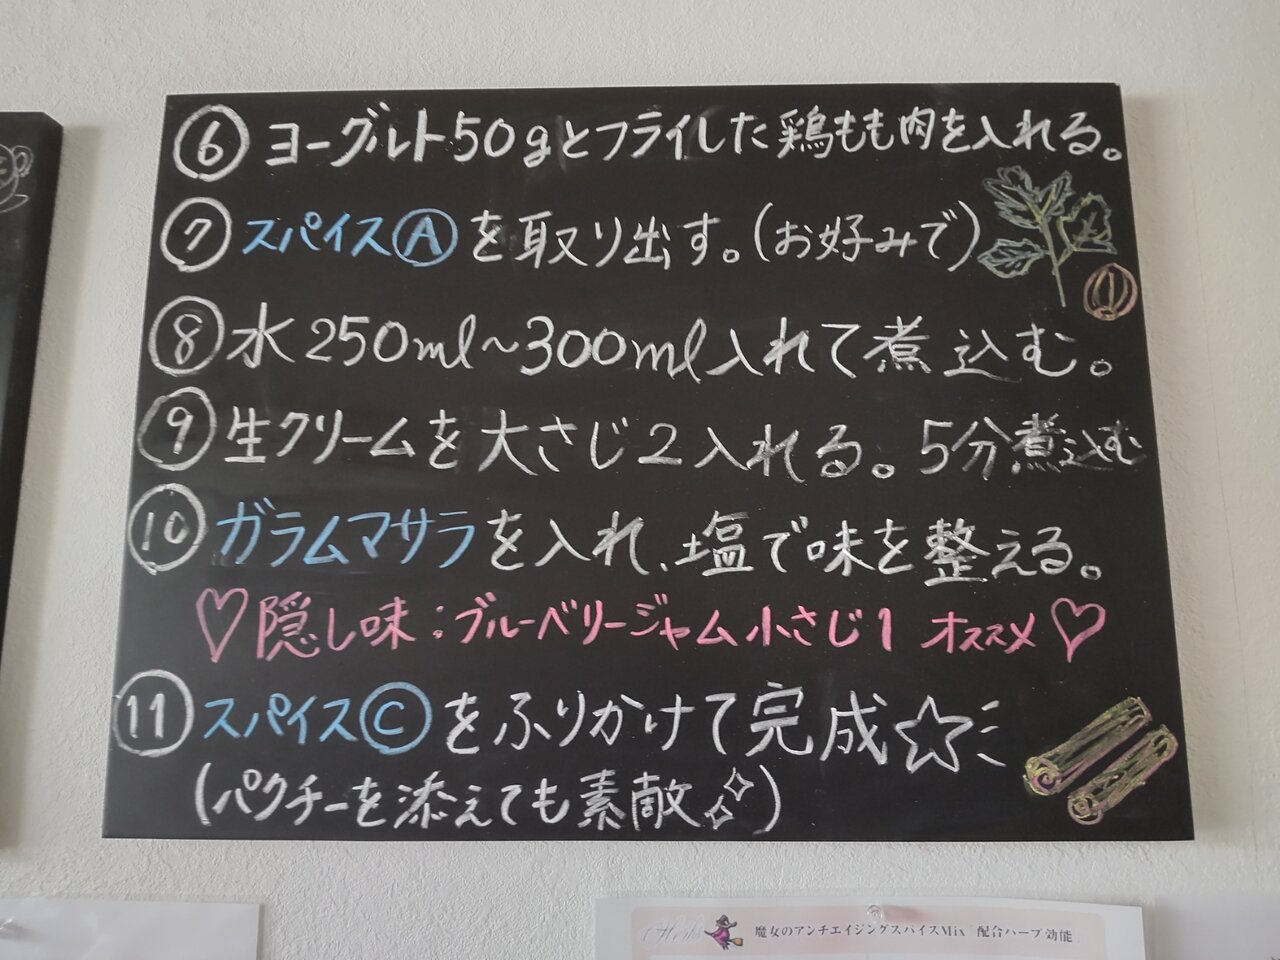 ⑥ ヨーグルト50gとフライした鶏もも肉を入れる。
⑦ スパイスⒶを取り出す。(お好みで)
⑧ 水250ml～300ml入れて煮込む。
⑨ 生クリームを大さじ2入れる。5分煮込む
⑩ ガラムマサラを入れ、塩で味を整える。
♡隠し味:ブルーベリージャム小さじ1 オススメ♡
⑪ スパイスⒸをふりかけて完成☆
(パクチーを添えても素敵✨)
Herbs 魔女のアンチエイジングスパイスMix「配合ハーブ効能」